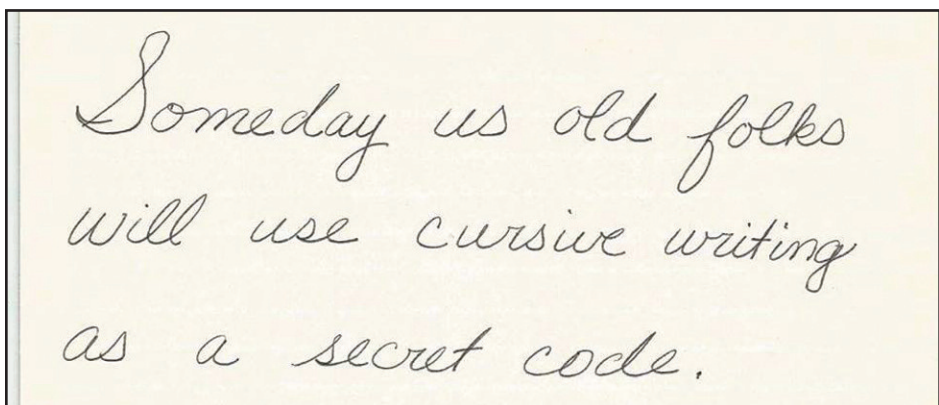 Someday us old folks
will use cursive writing
as a secret code.